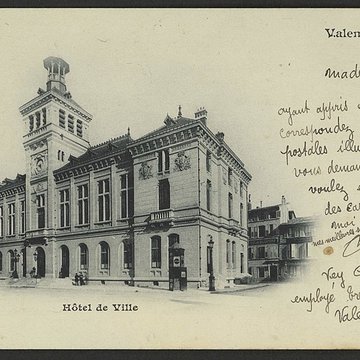 Valen
mada
ayant appris
correspondez
postales illu
vous deman
voulez
des car
mes
nos meilleures s
Vey
employé
Vale
Hôtel de Ville